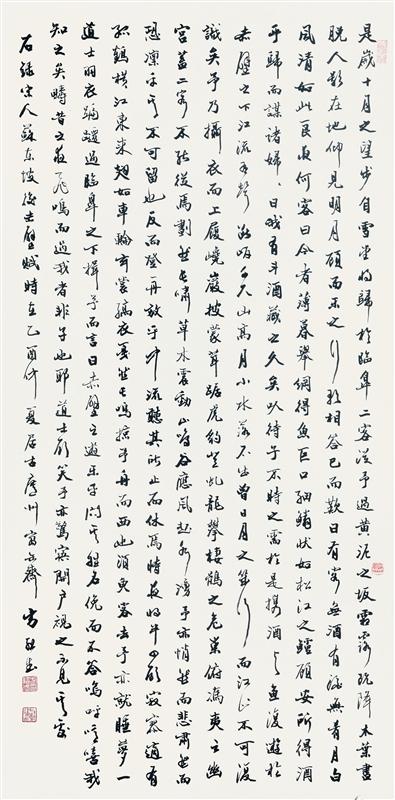 是歲十月之望步自雪堂將歸於臨皋二客從予過黃泥之坂霜露既降木葉盡
脫人影在地仰見明月顧而樂之行歌相答已而歎曰有客無酒有酒無肴月白
風清如此良夜何客曰今者薄暮舉網得魚巨口細鱗狀如松江之鱸顧安所得酒
乎歸而謀諸婦婦曰我有斗酒藏之久矣以待子不時之需於是攜酒與魚復遊於
赤壁之下江流有聲斷岸千尺山高月小水落石出曾日月之幾何而江山不可復
識矣予乃攝衣而上履巉巖披蒙茸踞虎豹登虬龍攀棲鶻之危巢俯馮夷之幽
宮蓋二客不能從焉劃然長嘯草木震動山鳴谷應風起水湧予亦悄然而悲肅然而
恐凜乎其不可留也反而登舟放乎中流聽其所止而休焉時夜將半四顧寂寥適有
孤鶴橫江東來翅如車輪玄裳縞衣戛然長鳴掠予舟而西也須臾客去予亦就睡夢一
道士羽衣蹁躚過臨皋之下揖予而言曰赤壁之遊樂乎問其姓名俛而不答嗚呼噫嘻我
知之矣疇昔之夜飛鳴而過我者非子也耶道士顧笑予亦驚寤開戶視之不見其處
右錄宋人蘇東坡後赤壁賦時在乙酉仲夏居古廬州齋方